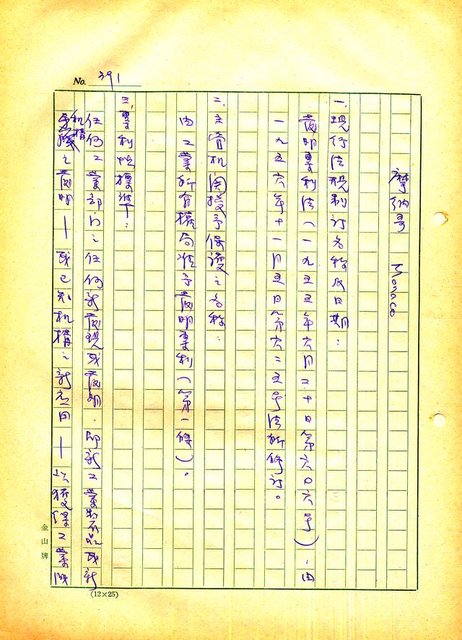 No. 391
摩納哥
一、現行法規制訂名称及日期：
發明專利法（一九五五年六月二十日第六〇六号）；由
一九五六年十一月五日第六二五号法所修訂。
二、主管机関授予保護之名称：
由工業所有權局准予發明專利（第一條）。
三、專利性標準：
任何工業部门之任何新發現或發明，即新工業物品或新
机構之發明—或已知机構之新应用—以獲得工業成
金山牌
(12×25)